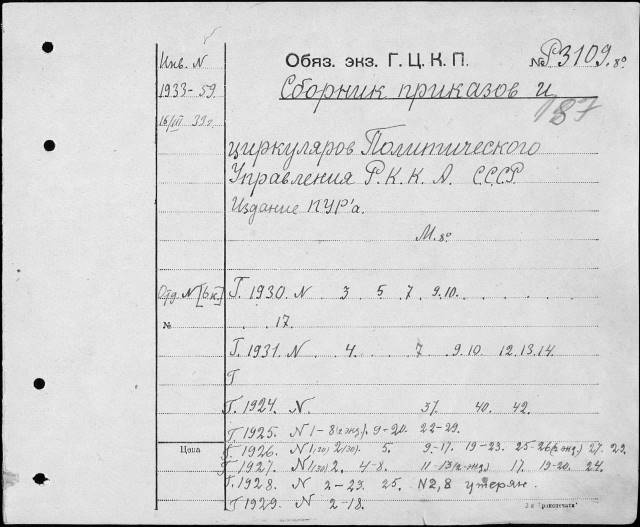 Инв. N
1933-59
16/III 39 г.
Обяз. экз. Г. Ц. К. П. № P3109. 8°
Сборник приказов и
187
циркуляров Политического
Управления Р. К. К. А. СССР.
Издание ПУР'а.
М. 8°
Отд. N [6 к.] Г. 1930. N 3 5 7 9.10.
№ 17.
Г. 1931. N 4. 7 9.10 12.13.14.
Г
Г. 1924. N 37. 40. 42.
Г. 1925. N 1-8 (2 экз.). 9-20. 22-29.
Цена
Г. 1926. N 5. 9-17. 19-23. 25-26 (2 экз.) 27. 29.
Г. 1927. N 4-8. 11-13 (2 экз.) 17. 19-20. 24.
Г. 1928. N 2-23. 25. N2,8 утерян.
Г 1929. N 2-18.